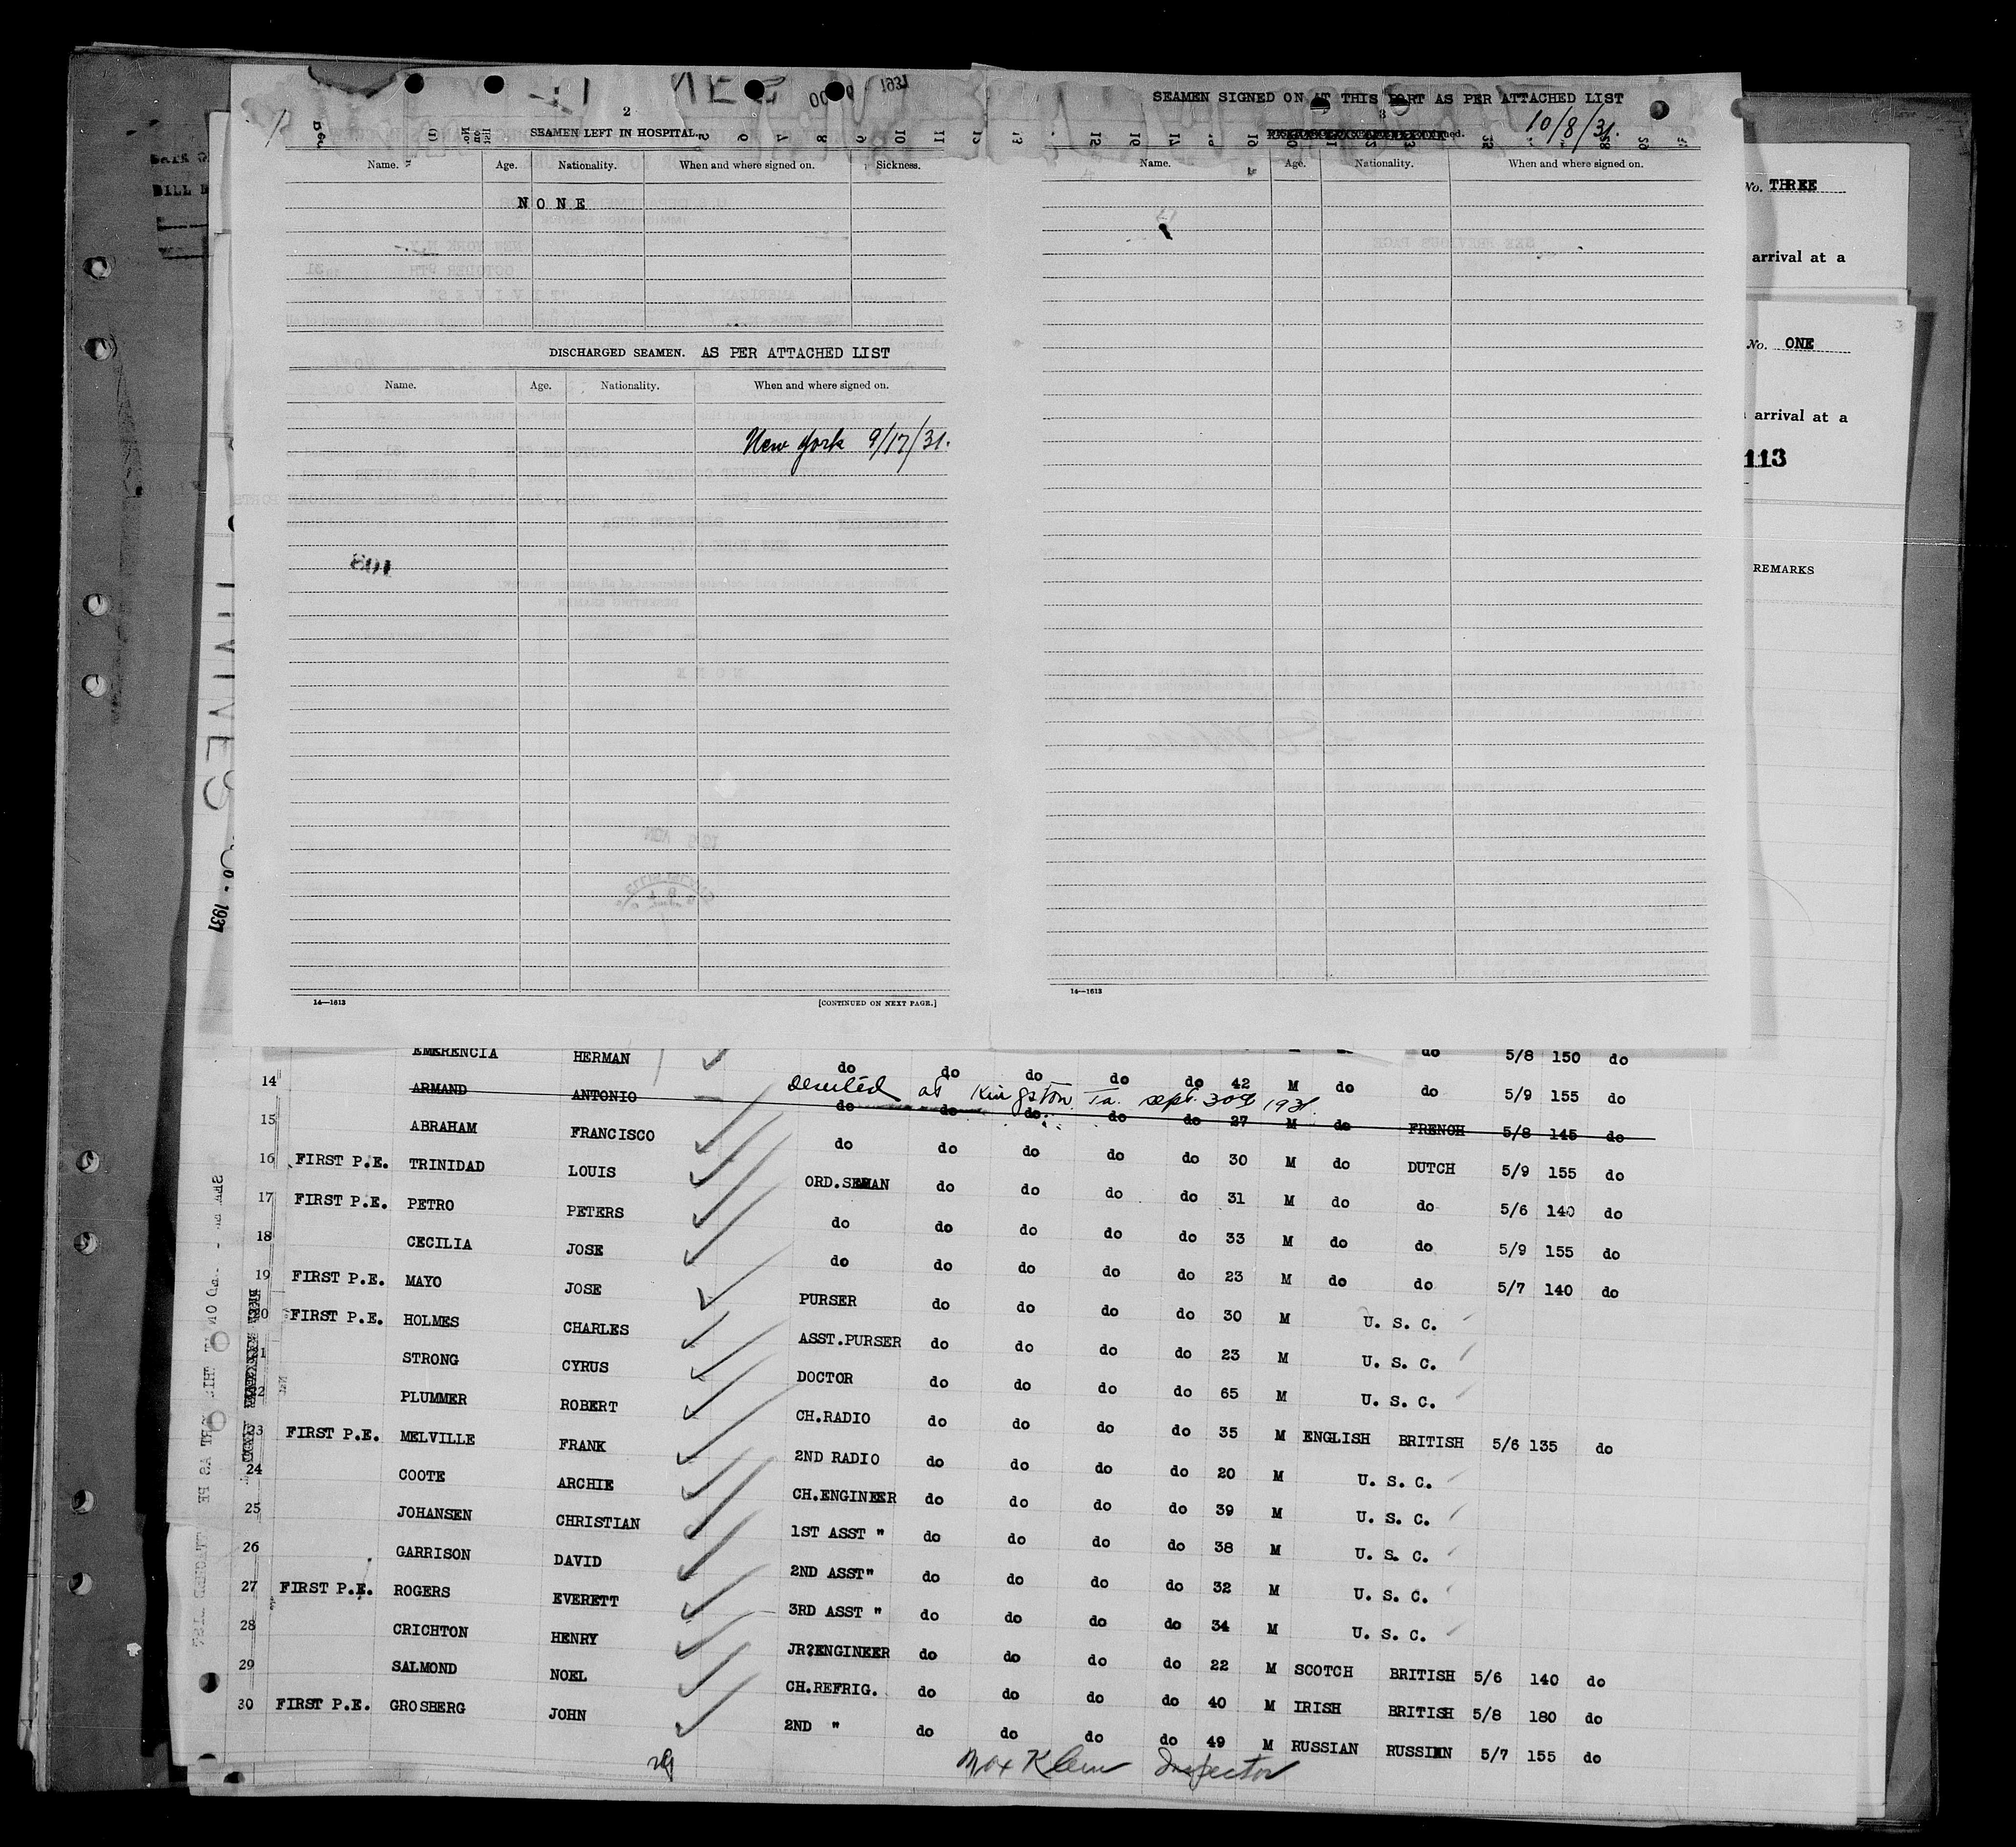 2
SEAMEN LEFT IN HOSPITAL.
Name. Age. Nationality. When and where signed on. Sickness.
NONE
DISCHARGED SEAMEN. AS PER ATTACHED LIST
Name. Age. Nationality. When and where signed on.
New York 9/17/31.
801
14—1613 [CONTINUED ON NEXT PAGE.]
SEAMEN SIGNED ON AT THIS PORT AS PER ATTACHED LIST
3
10/8/31.
Name. Age. Nationality. When and where signed on.
14—1613
No. THREE
arrival at a
No. ONE
arrival at a
113
REMARKS
1931
EMERENCIA HERMAN do do do do do 42 M do do 5/8 150 do
deserted at Kingston Ja. sept. 30th 1931.
14 ARMAND ANTONIO do do do do do 27 M do do 5/9 155 do
15 ABRAHAM FRANCISCO do do do do do 30 M do FRENCH 5/8 145 do
16 FIRST P.E. TRINIDAD LOUIS ORD.SEAMAN do do do do 31 M do DUTCH 5/9 155 do
17 FIRST P.E. PETRO PETERS do do do do do 33 M do do 5/6 140 do
18 CECILIA JOSE do do do do do 23 M do do 5/9 155 do
19 FIRST P.E. MAYO JOSE PURSER do do do do 30 M do do 5/7 140 do
20 FIRST P.E. HOLMES CHARLES ASST.PURSER do do do do 23 M U. S. C.
21 STRONG CYRUS DOCTOR do do do do 65 M U. S. C.
22 PLUMMER ROBERT CH.RADIO do do do do 35 M U. S. C.
23 FIRST P.E. MELVILLE FRANK 2ND RADIO do do do do 20 M ENGLISH BRITISH 5/6 135 do
24 COOTE ARCHIE CH.ENGINEER do do do do 39 M U. S. C.
25 JOHANSEN CHRISTIAN 1ST ASST " do do do do 38 M U. S. C.
26 GARRISON DAVID 2ND ASST" do do do do 32 M U. S. C.
27 FIRST P.E. ROGERS EVERETT 3RD ASST " do do do do 34 M U. S. C.
28 CRICHTON HENRY JR?ENGINEER do do do do 22 M U. S. C.
29 SALMOND NOEL CH.REFRIG. do do do do 40 M SCOTCH BRITISH 5/6 140 do
30 FIRST P.E. GROSBERG JOHN 2ND " do do do do 49 M IRISH BRITISH 5/8 180 do
RUSSIAN RUSSIAN 5/7 155 do
29 Max Klein Inspector